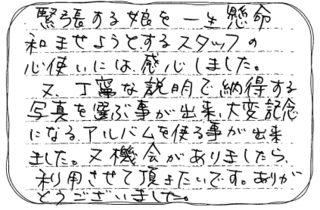 緊張する娘を一生懸命
和ませようとするスタッフの
心使いには、感心しました。
又、丁寧な説明で納得する
写真を選ぶ事が出来、大変記念
になるアルバムを作る事が出来
ました。又機会がありましたら、
利用させて頂きたいです。ありが
とうございました。